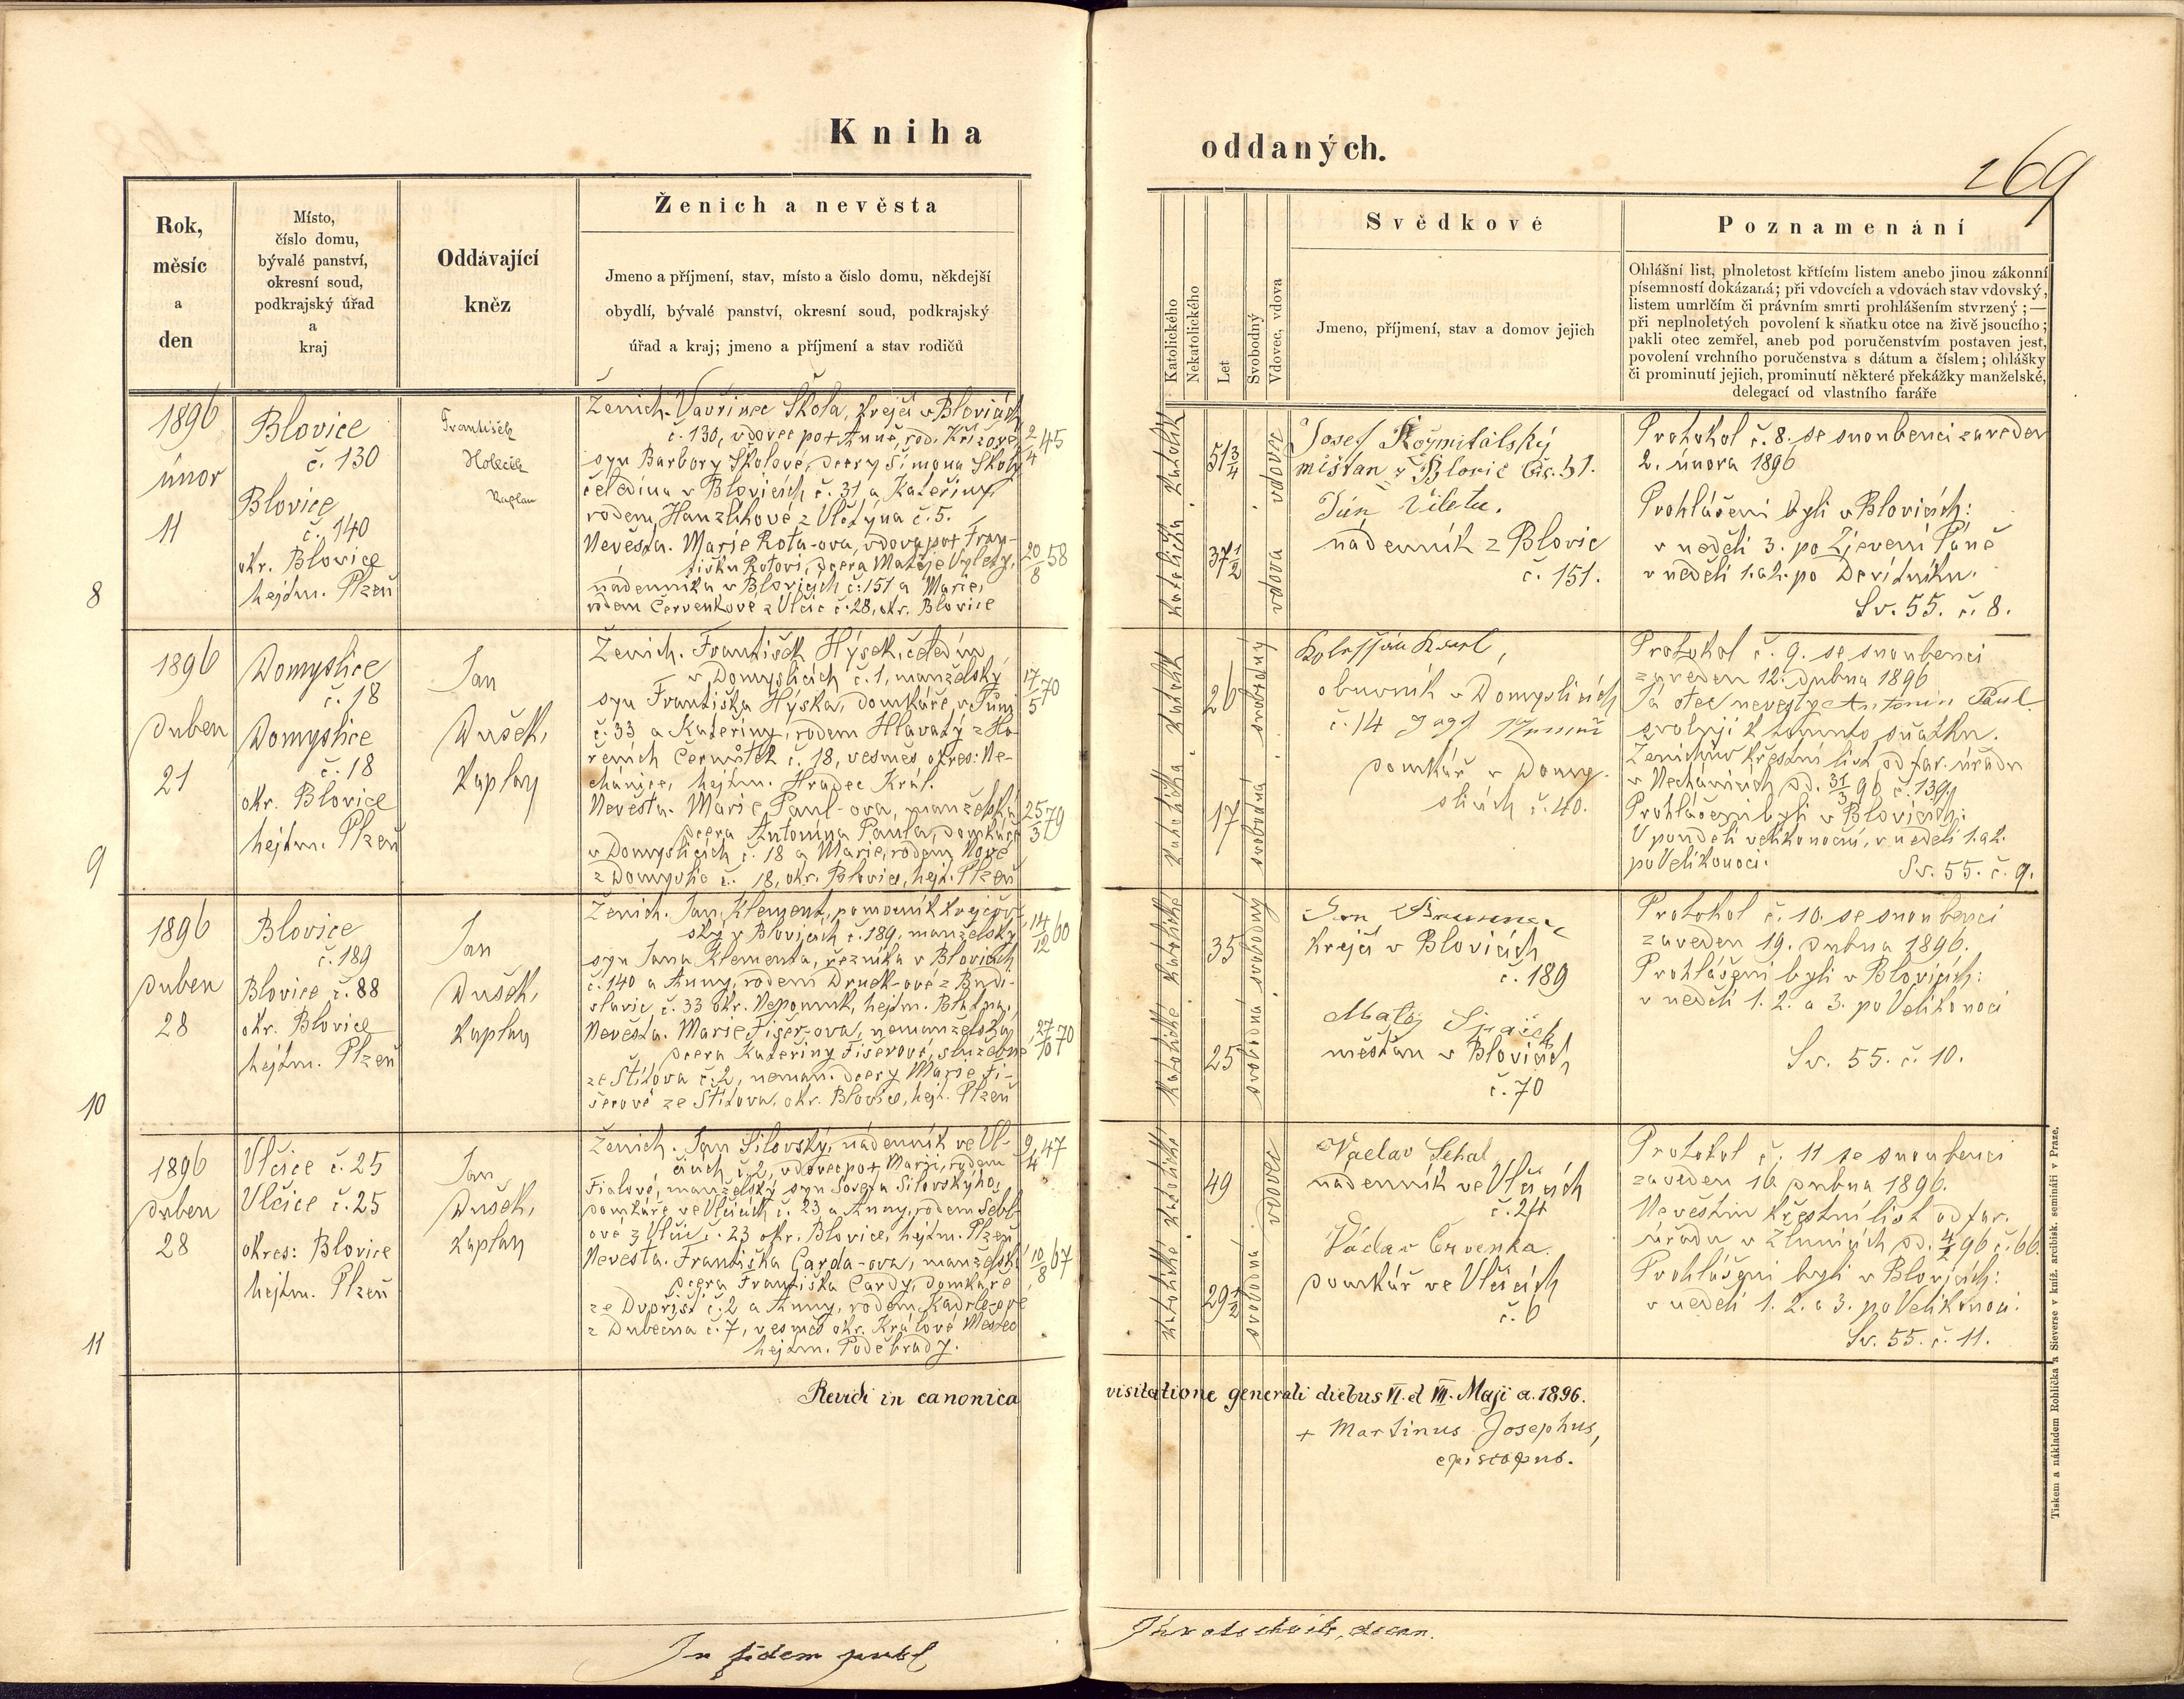 Kniha
oddaných.
269
Rok,
měsíc
a
den
Místo,
číslo domu,
bývalé panství,
okresní soud,
podkrajský úřad
a
kraj
Oddávající
kněz
Ženich a nevěsta
Jmeno a příjmení, stav, místo a číslo domu, někdejší
obydlí, bývalé panství, okresní soud, podkrajský
úřad a kraj; jmeno a příjmení a stav rodičů
Katolického
Nekatolického
Let
Svobodný
Vdovec, vdova
Svědkové
Jmeno, příjmení, stav a domov jejich
Poznamenání
Ohlášní list, plnoletost křtícím listem anebo jinou zákonní
písemností dokázaná; při vdovcích a vdovách stav vdovský,
listem umrlčím či právním smrti prohlášením stvrzený; —
při neplnoletých povolení k sňatku otce na živě jsoucího;
pakli otec zemřel, aneb pod poručenstvím postaven jest,
povolení vrchního poručenstva s dátum a číslem; ohlášky
či prominutí jejich, prominutí některé překážky manželské,
delegací od vlastního faráře
8
1896
únor
11
Blovice
č. 130
Blovice
č. 140
okr. Blovice
hejtm. Plzeň
František
Holeček
Kaplan
Ženich. Vavřinec Škola, krejčí v Blovicích
č. 130, vdovec po † Anně, rod. Křížové,
syn Barbory Školové, dcery Šimona Školy
čeledína v Blovicích č. 31 a Kateřiny,
rodem Hanzlíkové z Vlčtýna č. 5.
2/4 45
Nevěsta. Marie Rota-ova, vdova po † Fran-
tišku Rotovi, dcera Matěje Vylety,
nádenníka v Blovicích č. 151 a Marie,
rodem Červenkové z Vlčic č. 28, okr. Blovice
20/8 58
Katolík
51 3/4
vdovec
Katolička
37 1/2
vdova
Josef Rožmitálský
měšťan z Blovic
Jan Vileta.
nádenník z Blovic
č. 151.
Protokol č. 8. se snoubenci zaveden
2. února 1896
Prohlášeni byli v Blovicích:
v neděli 3. po Zjevení Páně
v neděli 1. a 2. po Devítníku.
Sv. 55. č. 8.
9
1896
duben
21
Domyslice
č. 18
Domyslice
č. 18
okr. Blovice
hejtm. Plzeň
Jan
Dušek,
Kaplan
Ženich. František Hýsek, čeledín
v Domyslicích č. 1, manželský
syn Františka Hýska, domkáře v
č. 33 a Kateřiny, rodem Hlavatý z Ho-
řeních Černůtek č. 18, vesměs okres: Ne-
chánice, hejtm. Hradec Král.
17/5 70
Nevěsta. Marie Paul-ova, manželská
dcera Antonína Paula, domkáře
v Domyslicích č. 18 a Marie, rodem Nové
z Domyslic č. 18, okr. Blovice, hejt. Plzeň
25/3 79
Katolík
26
svobodný
Katolička
17
svobodná
Karel,
obuvník v Domyslicích
č. 14
domkář v Domy-
slicích č. 40.
Protokol č. 9. se snoubenci
zaveden 12. dubna 1896
Já otec nevěsty Antonin Paul
svoluji k tomuto sňatku.
Ženichův křestní list od far. úřadu
v Nechánicích dd. 31/3 96 č. 139
Prohlášeni byli v Blovicích:
V pondělí velikonoční, v neděli 1. a 2.
po Velikonoci.
Sv. 55. č. 9.
10
1896
duben
28
Blovice
č. 189
Blovice č. 88
okr. Blovice
hejtm. Plzeň
Jan
Dušek,
Kaplan
Ženich. Jan Klement, pomocník krejčov-
ský v Blovicích č. 189, manželský
syn Jana Klementa, řezníka v Blovicích
č. 140 a Anny, rodem Druck-ové z Budi-
slavic č. 33 okr. Nepomuk, hejtm. Blatná,
14/12 60
Nevěsta. Marie Fišer-ova, nemanželská
dcera Kateřiny Fišerové, služebné
ze Štítova č. 2, neman. dcery Marie Fi-
šerové ze Štítova, okr. Blovice, hejt. Plzeň
27/10 70
Katolické
35
svobodný
Katolické
25
svobodná
Jan
krejčí v Blovicích
č. 189
Matěj
měšťan v Blovicích
č. 70
Protokol č. 10. se snoubenci
zaveden 19. dubna 1896.
Prohlášeni byli v Blovicích:
v neděli 1. 2. a 3. po Velikonoci
Sv. 55. č. 10.
11
1896
duben
28
Vlčice č. 25
Vlčice č. 25
okres: Blovice
hejtm. Plzeň
Jan
Dušek,
Kaplan
Ženich. Jan Silovský, nádenník ve Vl-
čicích č. 2, vdovec po † Marii, rodem
Fialové, manželský syn Josefa Silovskýho,
domkáře ve Vlčicích č. 23 a Anny, rodem Sebl-
ové z Vlčic č. 23 okr. Blovice, hejtm. Plzeň
9/4 47
Nevěsta. Františka Carda-ova, manželská
dcera Františka Cardy, domkáře
ze Dvořišť č. 2 a Anny, rodem Kadrlezové
z Dubečna č. 7, vesměs okr. Králové Městec
hejtm. Poděbrady.
10/8 67
Katolické
49
vdovec
Katolické
29 1/2
svobodná
Václav Sehal
nádenník ve Vlčicích
č. 24
Václav Červenka.
domkář ve Vlčicích
č. 6
Protokol č. 11 se snoubenci
zaveden 16 dubna 1896.
Nevěstin křestní list od far.
úřadu v Žlunicích dd. 96 č. 66.
Prohlášeni byli v Blovicích:
v neděli 1. 2. a 3. po Velikonoci.
Sv. 55. č. 11.
Revidi in canonica visitatione generali diebus VI. et VII. Maji a. 1896.
+ Martinus Josephus,
episcopus.
In fidem publ
decan.
Tiskem a nákladem Rohlíčka a Sieverse v kníž. arcibisk. semináři v Praze.